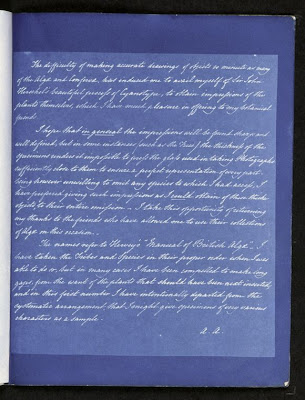 The difficulty of making accurate drawings of objects as minute as many
of the Algae and Confervae, has induced me to avail myself of Sir John
Herschel's beautiful process of Cyanotype, to obtain impressions of the
plants themselves, which I have much pleasure in offering to my botanical
friends.
I hope that in general the impressions will be found sharp and
well defined, but in some instances (such as the Fuci) the thickness of the
specimens renders it impossible to press the glass used in taking Photographs
sufficiently close to them to ensure a perfect representation of every part.
Being however unwilling to omit any species to which I had access, I
have preferred giving such impressions as I could obtain of these thick
objects, to their entire omission. I take this opportunity of returning
my thanks to the friends who have allowed me to use their collections
of Algae on this occasion.
The names refer to Harvey's "Manual of British Algae". I
have taken the Tribes and Species in their proper order when I was
able to do so, but in many cases I have been compelled to make long
gaps, from the want of the plants that should have been next inserted,
and in this first number I have intentionally departed from the
systematic arrangement that I might give specimens of very various
characters as a sample.
A. A.